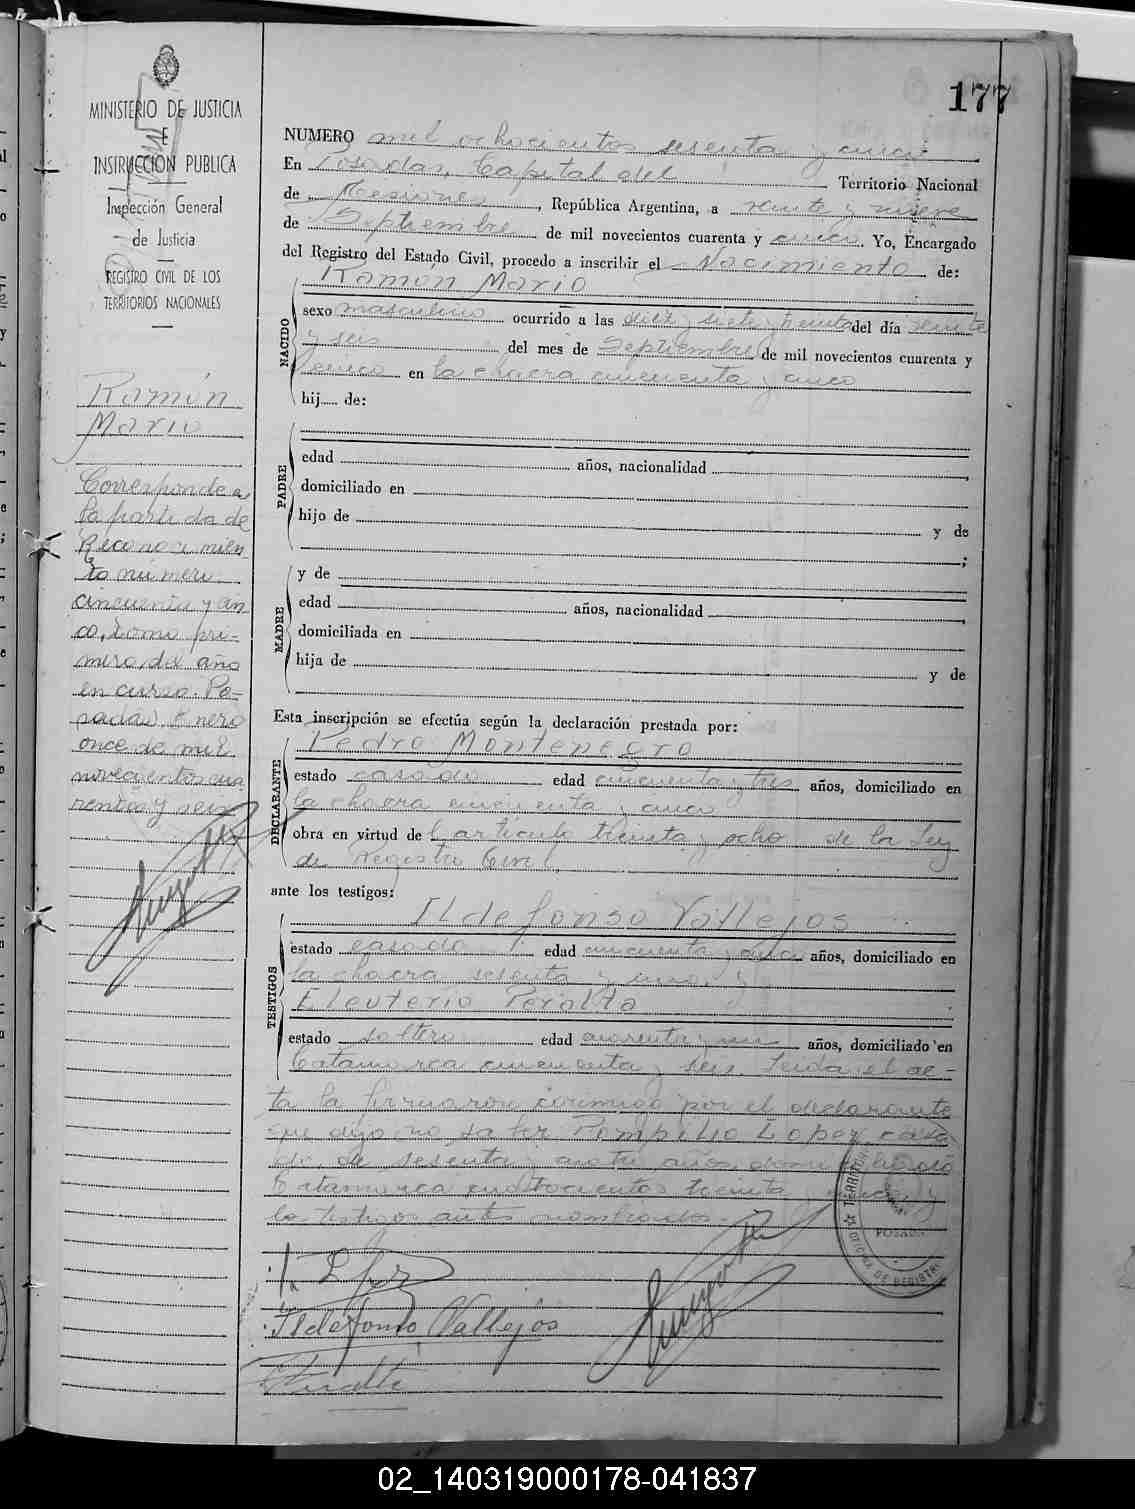 177
MINISTERIO DE JUSTICIA
E
INSTRUCCIÓN PUBLICA
Inspección General
de Justicia
REGISTRO CIVIL DE LOS
TERRITORIOS NACIONALES
Ramón
Mario
Corresponde a
la partida de
Reconocimien
to número
cincuenta y cin
co, tomo pri-
mero, del año
en curso. Po-
sadas, Enero
once de mil
novecientos cua
renta y seis
NUMERO mil ochocientos sesenta y cinco
En Posadas, Capital del Territorio Nacional
de Misiones, República Argentina, a veinte y nueve
de Septiembre de mil novecientos cuarenta y cinco. Yo, Encargado
del Registro del Estado Civil, procedo a inscribir el Nacimiento de:
NACIDO
Ramón Mario
sexo masculino ocurrido a las diez y siete y treinta del día veinte
y seis del mes de Septiembre de mil novecientos cuarenta y
cinco en la chacra cincuenta y cinco
hij de:
PADRE
edad años, nacionalidad
domiciliado en
hijo de y de
;
MADRE
y de
edad años, nacionalidad
domiciliada en
hija de y de
Esta inscripción se efectúa según la declaración prestada por:
DECLARANTE
Pedro Montenegro
estado casado edad cincuenta y tres años, domiciliado en
la chacra cincuenta y cinco
obra en virtud del artículo treinta y ocho de la Ley
de Registro Civil,
ante los testigos:
TESTIGOS
Ildefonso Vallejos
estado casado edad cincuenta y años, domiciliado en
la chacra sesenta y uno, y
Eleuterio Peralta
estado soltero edad cuarenta y un años, domiciliado en
Catamarca cincuenta y seis. Leida el ac-
ta la firmaron conmigo por el declarante
que dijo no saber Pompilio Lopez, casa
do, de sesenta y cuatro años, domiciliado
Catamarca cuatrocientos treinta y y
los testigos antes nombrados.
Ildefonso Vallejos
Peralta
OFICINA DE REGISTRO
POSADAS
02_140319000178-041837